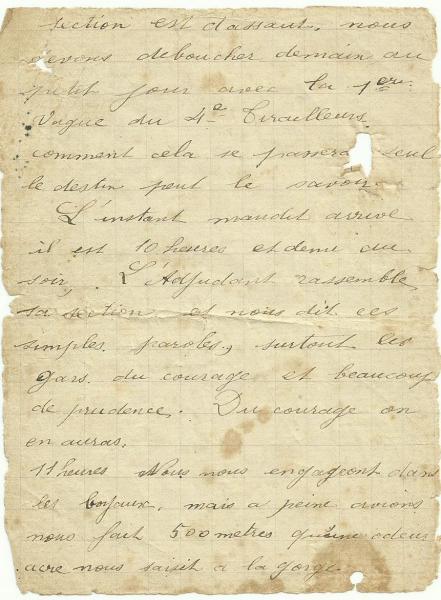 section est d'assaut, nous
devons deboucher demain au
petit jour avec la 1ere
Vague du 4e Tirailleurs
comment cela se passera seul
le destin peut le savoir
L'instant maudit arrive
il est 10 heures et demi du
soir, L'Adjudant rassemble
sa section et nous dit ces
simples paroles, surtout les
gars du courage et beaucoup
de prudence. Du courage on
en auras.
11 heures Nous nous engageont dans
les boyaux, mais a peine avions
nous fait 500 metres qu'une odeur
acre nous saisit a la gorge